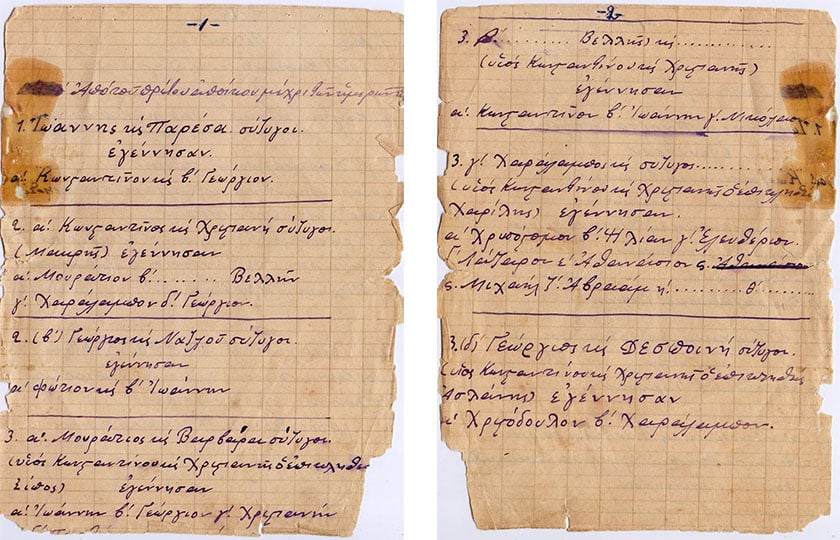 -1-
Ἀπὸ τοῦ πρώτου ἀποίκου μέχρι
1. Ἰωάννης κὶς Παρέσα σύζυγοι.
ἐγέννησαν.
α! Κωνσταντῖνον κὶς β! Γεώργιον.
2. α! Κωνσταντῖνος κὶς Χριστιανὴ σύζυγοι.
(Μακρῆς) ἐγέννησαν
α! Μουράτιον β! ....... Βελλῆν
γ! Χαράλαμπον δ! Γεώργιον.
2. (β!) Γεώργιος κὶς Νατλοῦ σύζυγοι.
ἐγέννησαν
α! Φώτιον κὶς β! Ἰωάννην
3. α! Μουράτιος κὶς Βαρβάρα σύζυγοι.
(υἱὸς Κωνσταντίνου κὶς Χριστιανῆς ὁ ἐπικληθεὶς
) ἐγέννησαν
α! Ἰωάννην β! Γεώργιον γ! Χριστιανὴν
-2-
3. β! .......... Βελλῆς κὶς ............
(υἱὸς Κωνσταντίνου κὶς Χριστιανῆς)
ἐγέννησαν
α! Κωνσταντῖνον β! Ἰωάννην γ! Νικόλαον
3. γ! Χαράλαμπος κὶς σύζυγος ..........
(υἱὸς Κωνσταντίνου κὶς Χριστιανῆς ὁ ἐπικληθεὶς
Χαρίλης) ἐγέννησαν.
α! Χρυσόστομον β! Ἠλίαν γ! Ἐλευθέριον.
δ! Λάζαρον ε! Ἀθανάσιον ς.
ς. Μιχαὴλ ζ! Ἀβραὰμ η! ......... θ! .......
3. (δ) Γεώργιος κὶς Δεσποινὴ σύζυγοι.
(υἱὸς Κωνσταντίνου κὶς Χριστιανῆς ὁ ἐπικληθεὶς
Ἀσλάνης) ἐγέννησαν
α! Χριστόδουλον β! Χαράλαμπον.